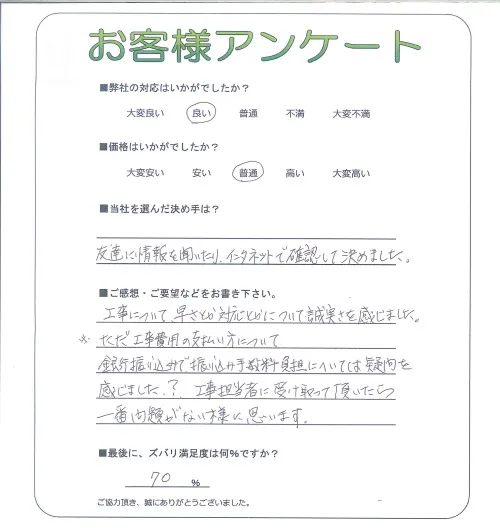 お客様アンケート
■弊社の対応はいかがでしたか？
大変良い 良い 普通 不満 大変不満
■価格はいかがでしたか？
大変安い 安い 普通 高い 大変高い
■当社を選んだ決め手は？
友達に情報を聞いたり、インタネットで確認して決めました。
■ご感想・ご要望などをお書き下さい。
工事について、早さとか対応とかについて誠実さを感じました。
※ ただ工事費用の支払い方について
銀行振り込みで振り込み手数料負担については疑問を
感じました.? 工事担当者に受け取って頂いたら
一番問題がない様に思います。
■最後に、ズバリ満足度は何%ですか？
70 %
ご協力頂き、誠にありがとうございました。